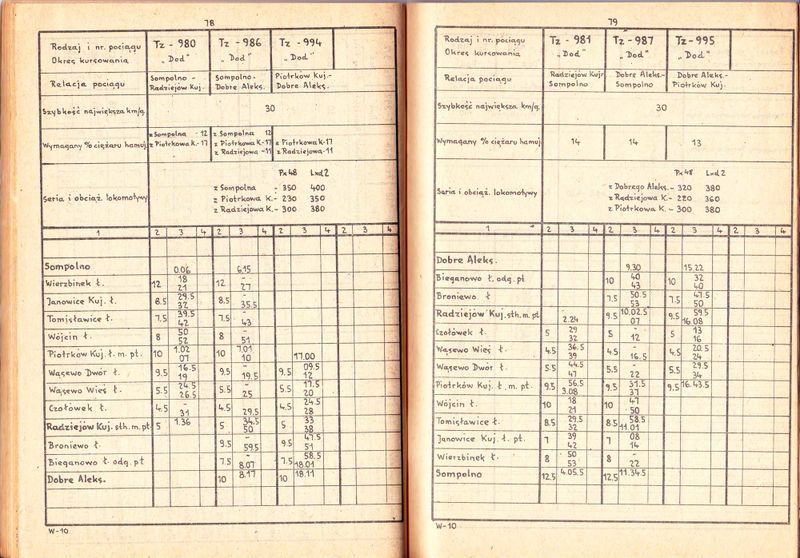 78
Rodzaj i nr. pociągu Tz - 980 Tz - 986 Tz - 994
Okres kursowania „Dod" „Dod" „Dod"
Relacja pociągu Sompolno - Radziejów Kuj. Sompolno. - Dobre Aleks. Piotrków Kuj. - Dobre Aleks.
Szybkość największa km/g. 30
Wymagany % ciężaru hamuj. z Sompolna - 12 z Sompolna 12
z Piotrkowa K.-17 z Piotrkowa K.-17 z Piotrkowa K-17
z Radziejowa -11 z Radziejowa-11
Px48 Lxd2
Seria i obciąż. lokomotywy z Sompolna - 350 400
z Piotrkowa K. - 230 350
z Radziejowa K. - 300 380
1 2 3 4 2 3 4 2 3 4 2 3 4
Sompolno 0.06 6.15
Wierzbinek ł. 12 18 21 12 - 27
Janowice Kuj. ł. 8.5 29.5 32 8.5 - 35.5
Tomisławice ł. 7.5 39.5 42 7.5 - 43
Wójcin ł. 8 50 52 8 - 51
Piotrków Kuj. ł. m. pt. 10 1.02 07 10 7.01 10 17.00
Wąsewo Dwór ł. 9.5 16.5 19 9.5 - 19.5 9.5 09.5 12
Wąsewo Wieś ł. 5.5 24.5 26.5 5.5 - 25 5.5 17.5 20
Czołówek ł. 4.5 - 31 4.5 - 29.5 4.5 24.5 28
Radziejów Kuj. sth. m. pt. 5 1.36 5 34.5 50 5 33 38
Broniewo ł. 9.5 - 59.5 9.5 47.5 51
Bieganowo ł. odg. pt 7.5 - 8.07 7.5 58.5 18.01
Dobre Aleks. 10 8.17 10 18.11
W-10
79
Rodzaj i nr. pociągu Tz - 981 Tz - 987 Tz - 995
Okres kursowania „Dod" „Dod" „Dod"
Relacja pociągu Radziejów Kuj- Sompolno Dobre Aleks.- Sompolno Dobre Aleks.- Piotrków Kuj.
Szybkość największa km/g. 30
Wymagany % ciężaru hamuj. 14 14 13
Px48 Lxd2
Seria i obciąż. lokomotywy z Dobrego Aleks. - 320 380
z Radziejowa K. - 280 360
z Piotrkowa K. - 300 380
1 2 3 4 2 3 4 2 3 4 2 3 4
Dobre Aleks. 9.30 15.22
Bieganowo ł. odg. pt 10 40 43 10 32 40
Broniewo ł 7.5 50.5 53 7.5 47.5 50
Radziejów Kuj. sth. m. pt 2.24 9.5 10.02.5 07 9.5 59.5 16.08
Czołówek ł. 5 29 32 5 - 12 5 13 16
Wąsewo Wieś ł. 4.5 36.5 39 4.5 - 16.5 4.5 20.5 24
Wąsewo Dwór ł 5.5 44.5 47 5.5 - 22 5.5 29.5 34
Piotrków Kuj. ł. m. pt. 9.5 56.5 3.08 9.5 31.5 37 9.5 16.43.5
Wójcin ł. 10 18 21 10 47 50
Tomisławice ł. 8.5 29.5 32 8.5 58.5 11.01
Janowice Kuj. ł. pt. 7 39 42 7 08 14
Wierzbinek ł. 8 50 53 8 - 22
Sompolno 12.5 4.05.5 12.5 11.34.5
W-10